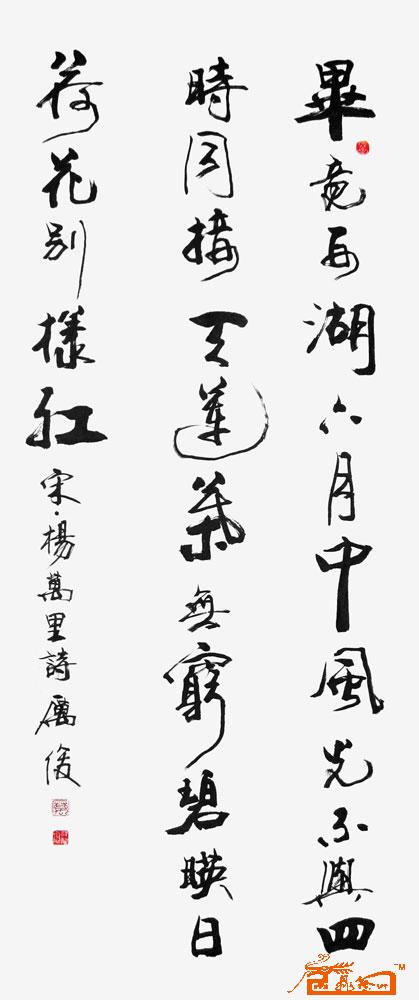 畢竟西湖六月中風光不與四
時同接天蓮葉無窮碧暎日
荷花別樣紅
宋·楊萬里詩厲俊
TM